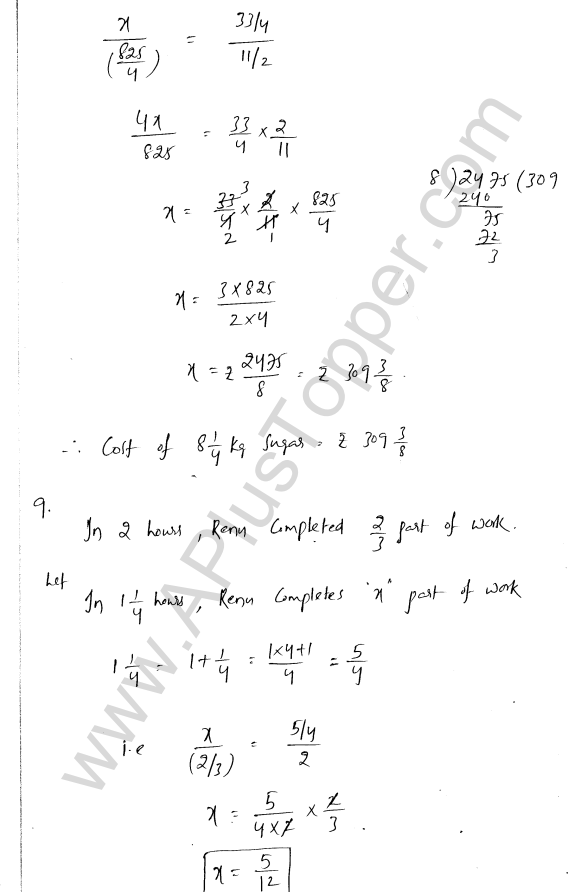 x/(825/4) = (33/4)/(11/2)
4x/825 = 33/4 × 2/11
x = 33/4 × 2/11 × 825/4
3
2 1
8 ) 2475 ( 309
240
75
72
3
x = (3×825)/(2×4)
x = ₹ 2475/8 = ₹ 309 3/8.
∴ Cost of 8 1/4 kg Sugar = ₹ 309 3/8
9.
In 2 hours, Renu Completed 2/3 part of work.
Let
In 1 1/4 hours, Renu Completes "x" part of work
1 1/4 = 1 + 1/4 = (1×4+1)/4 = 5/4
i.e x/(2/3) = (5/4)/2
x = 5/(4×2) × 2/3.
x = 5/12
www.APlusTopper.com